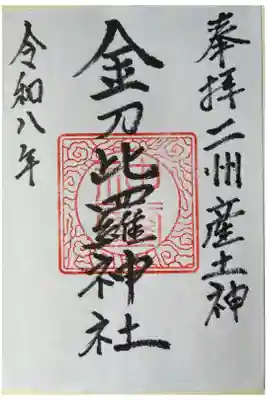 奉拝二州産土神
金刀比羅神社
令和八年